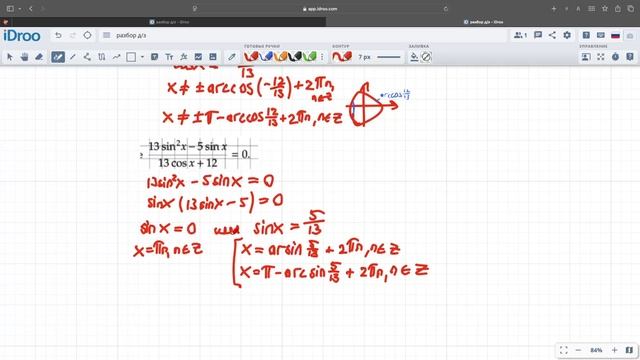 app.idroo.com
разбор д/з - iDroo
разбор д/з - iDroo
iDroo
разбор д/з
ГОТОВЫЕ РУЧКИ
КОНТУР
7 px
ЗАЛИВКА
13
x ≠ ± arccos(-12/13) + 2πn,
n∈Z
arccos 12/13
x ≠ ± π - arccos 12/13 + 2πn, n∈Z
(13 sin²x − 5 sin x)/(13 cos x + 12) = 0.
13sin²x - 5sinx = 0
sinx (13sinx - 5) = 0
sinx = 0 или sinx = 5/13
x = πn, n∈Z
x = arsin 5/13 + 2πn, n∈Z
x = π - arcsin 5/13 + 2πn, n∈Z
84%